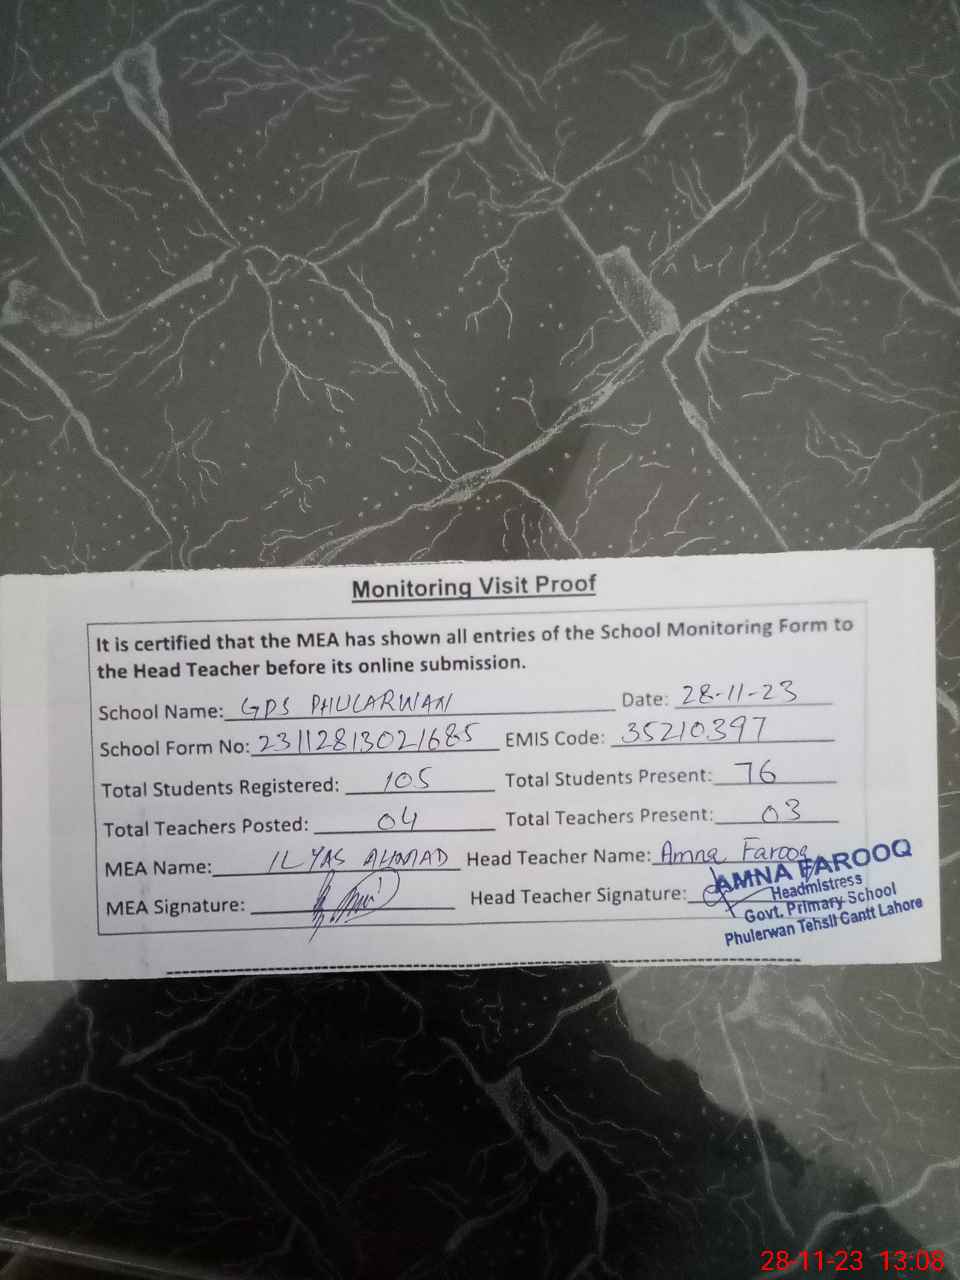 Monitoring Visit Proof
It is certified that the MEA has shown all entries of the School Monitoring Form to
the Head Teacher before its online submission.
School Name: GPS PHULARWAN Date: 28-11-23
School Form No: 23112813021685 EMIS Code: 35210397
Total Students Registered: 105 Total Students Present: 76
Total Teachers Posted: 04 Total Teachers Present: 03
MEA Name: ILYAS AHMAD Head Teacher Name: Amna Farooq
MEA Signature: Head Teacher Signature:
AMNA FAROOQ
Headmistress
Govt. Primary School
Phulerwan Tehsil Cantt Lahore
28-11-23 13:08